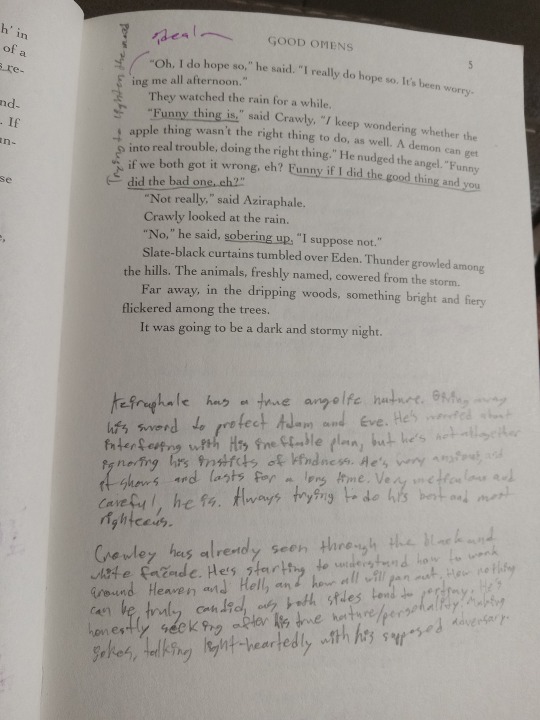 h' in
of a
s re-
nd-
. If
un-
se
GOOD OMENS
5
"Oh, I do hope so," he said. "I really do hope so. It's been worry-
ing me all afternoon."
They watched the rain for a while.
"Funny thing is," said Crawly, "I keep wondering whether the
apple thing wasn't the right thing to do, as well. A demon can get
into real trouble, doing the right thing." He nudged the angel. "Funny
if we both got it wrong, eh? Funny if I did the good thing and you
did the bad one, eh?"
"Not really," said Aziraphale.
Crawly looked at the rain.
"No," he said, sobering up. "I suppose not."
Slate-black curtains tumbled over Eden. Thunder growled among
the hills. The animals, freshly named, cowered from the storm.
Far away, in the dripping woods, something bright and fiery
flickered among the trees.
It was going to be a dark and stormy night.
Trying to lighten the mood
Aziraphale has a true angelic nature. Giving away
his sword to protect Adam and Eve. He's worried about
interfering with His ineffable plan, but he's not altogether
ignoring his instincts of kindness. He's very anxious, and
it shows and lasts for a long time. Very meticulous and
careful, he is. Always trying to do his best and most
righteous.
Crowley has already seen through the black and
white façade. He's starting to understand how to work
around Heaven and Hell, and how all will pan out. How nothing
can be truly candid, as both sides tend to portray. He's
honestly seeking after his true nature/personality. Making
jokes, talking light-heartedly with his supposed adversary.